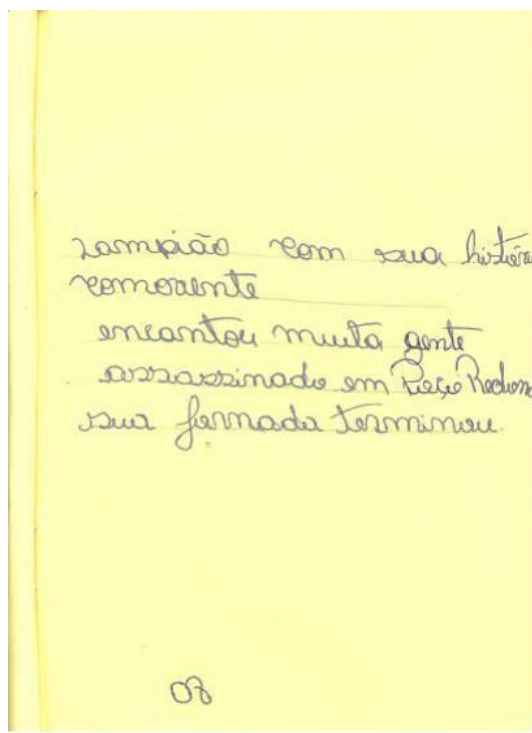 Lampião com sua históri
comovente
encantou muita gente
assassinado em Poço Redon
sua jornada terminou.
08